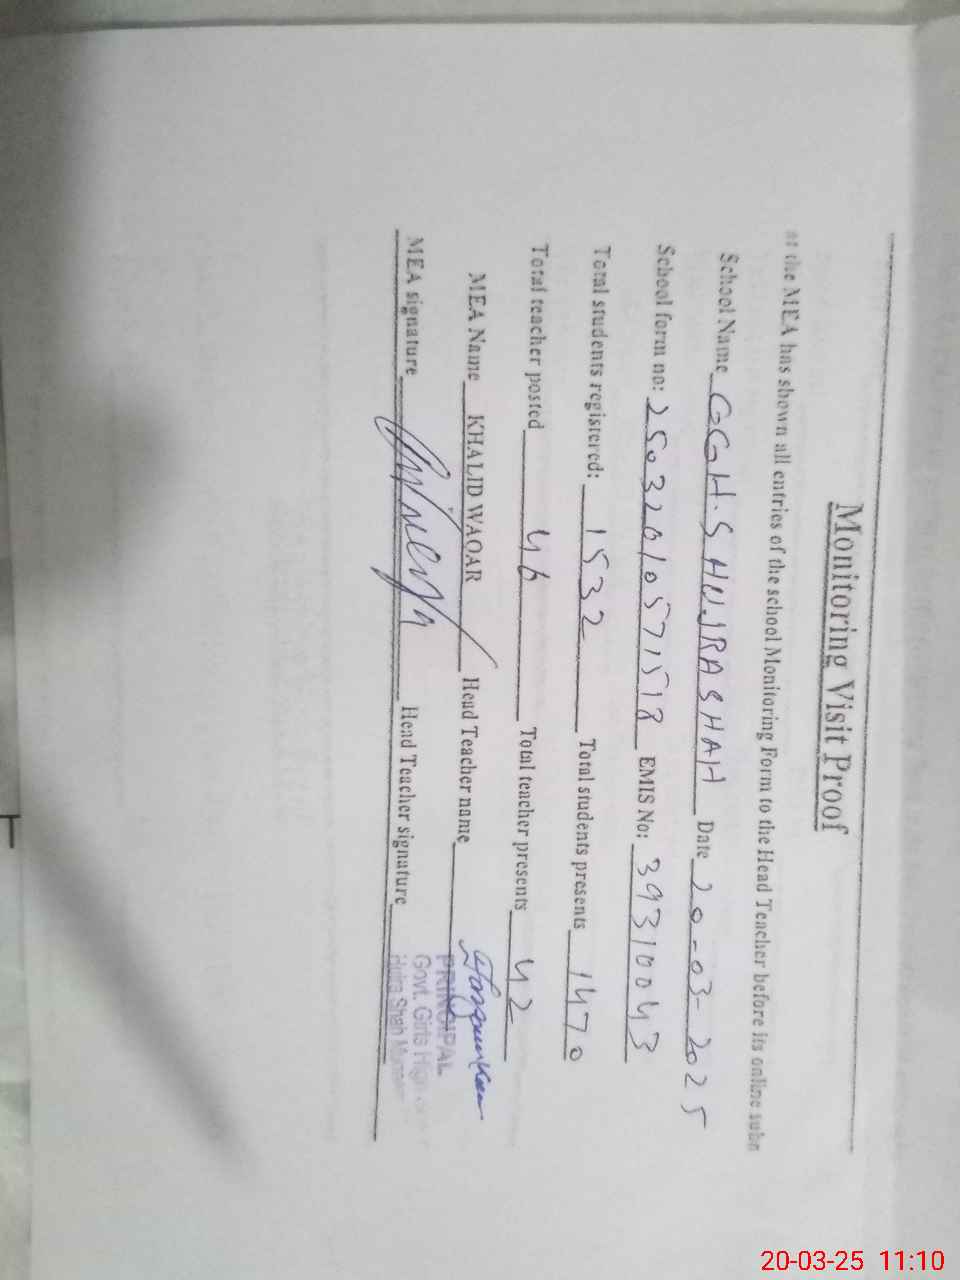 Monitoring Visit Proof
at the MEA has shown all entries of the school Monitoring Form to the Head Teacher before its online subn
School Name GGH.S HUJRA SHAH Date 20-03-2025
School form no: 25032010571518 EMIS No: 39310043
Total students registered: 1532 Total students presents 1470
Total teacher posted 46 Total teacher presents 42
MEA Name KHALID WAQAR Head Teacher name
MEA signature Head Teacher signature
PRINCIPAL
Govt. Girls High
Hujra Shah
20-03-25 11:10